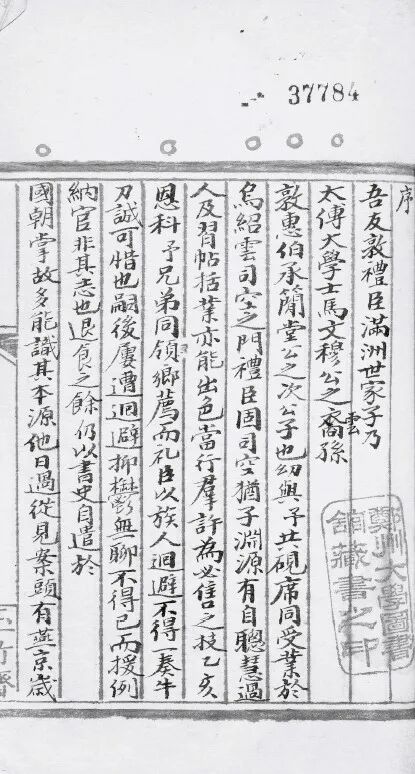 37784
序
吾友敦禮臣滿洲世家子乃
太傅大學士馬文穆公之雲裔孫
敦惠伯承簡堂公之次公子也幼與予共硯席同受業於
烏紹雲司空之門禮臣固司空猶子淵源有自聰慧過
人及習帖括業亦能出色當行羣許為必售之技乙亥
恩科予兄弟同領鄉薦而礼臣以族人迴避不得一奏牛
刀誠可惜也嗣後屢遭迴避抑鬱無聊不得已而援例
納官非其志也退食之餘仍以書史自遣於
國朝掌故多能識其本源他日過從見案頭有燕京歲
鄭州大學圖書
館藏書之印